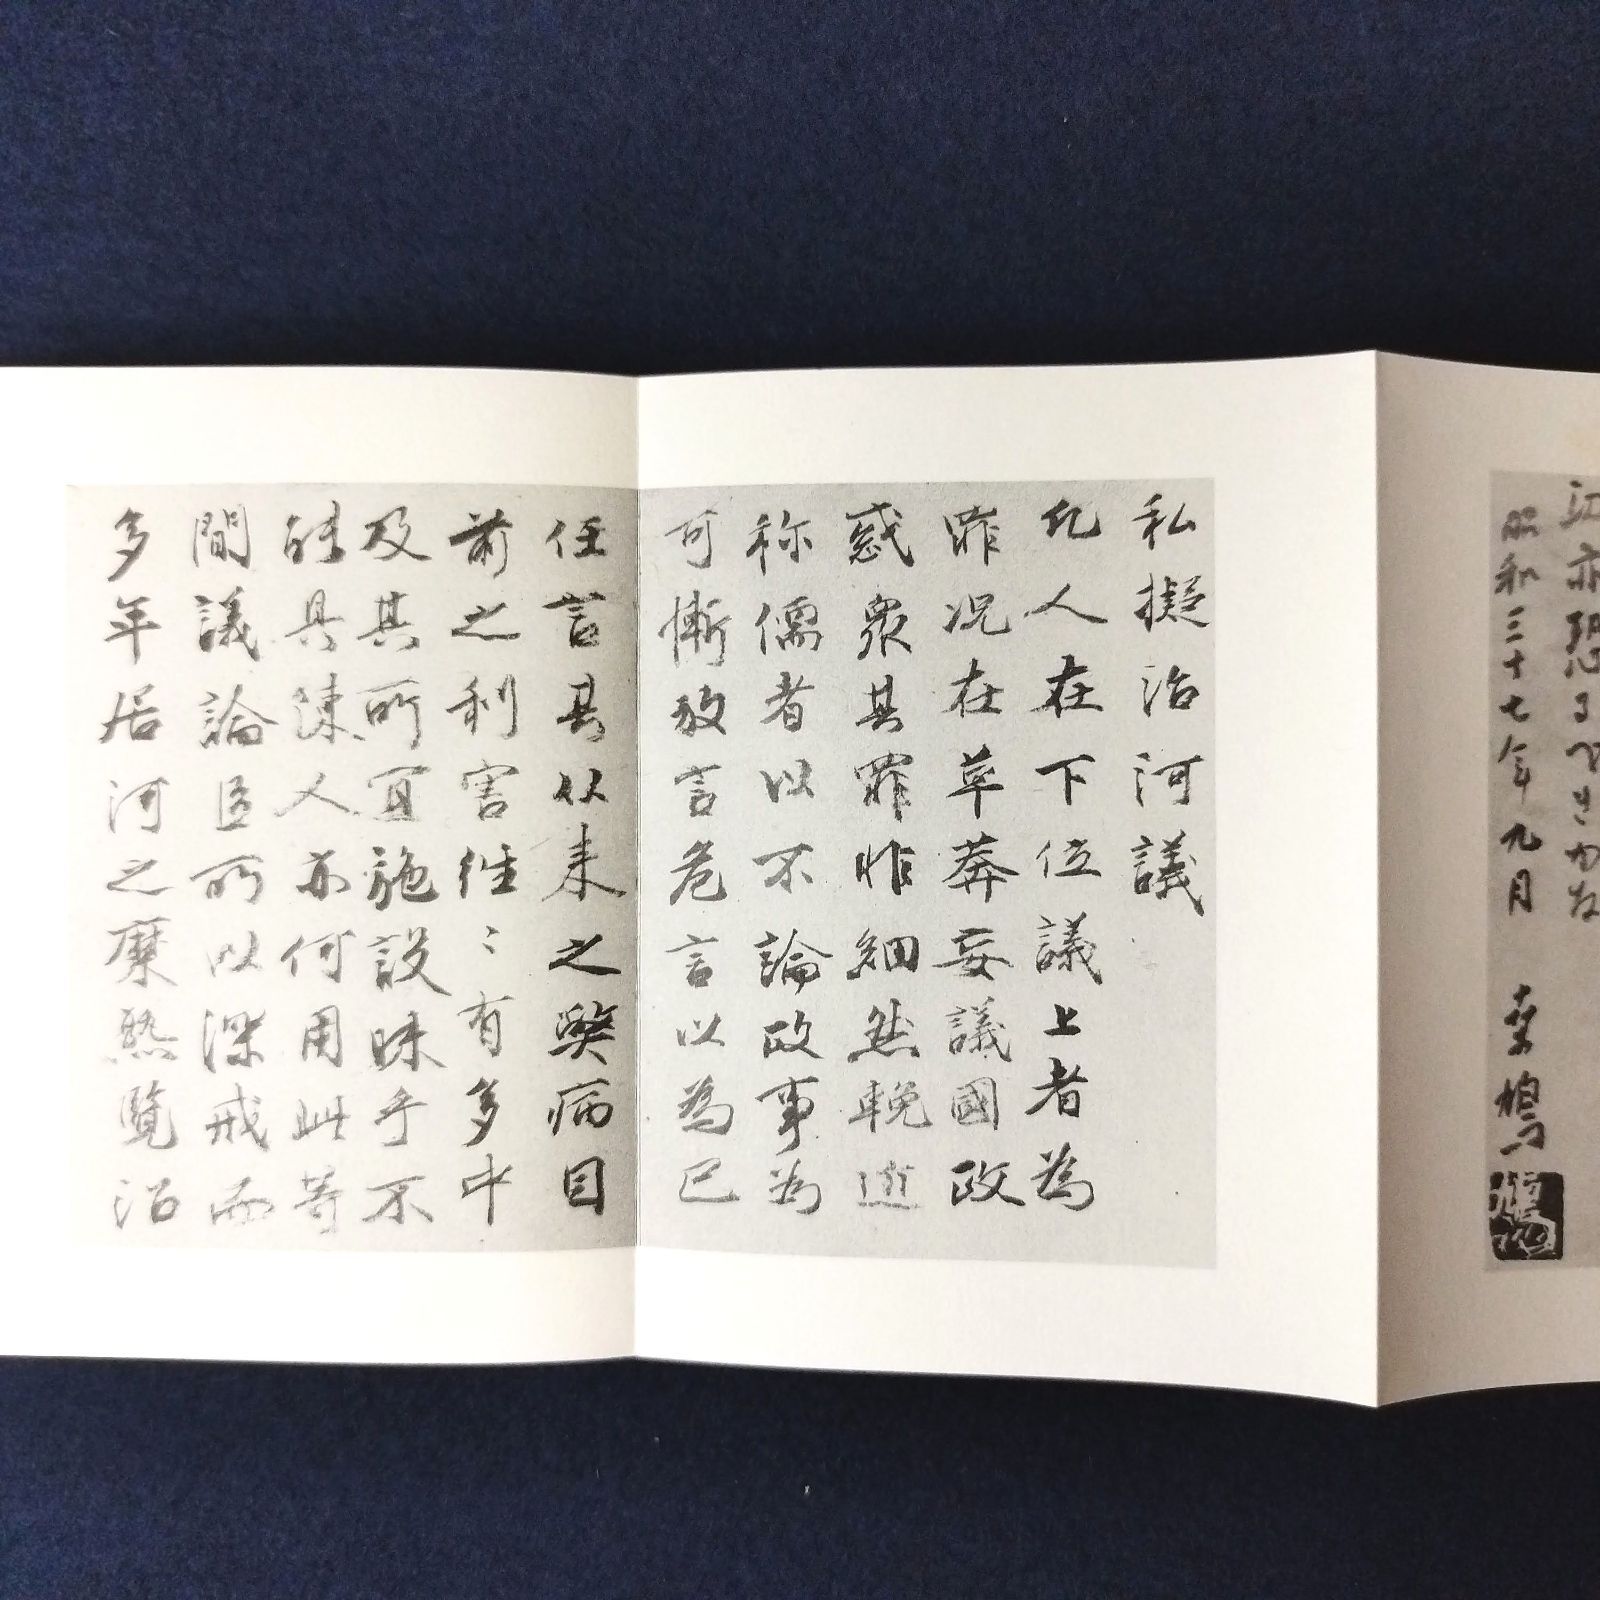 昭和三十七年九月
私擬治河議
凡人在下位議上者為
罪况在草莽妄議國政
惑衆其罪非細然輓近
称儒者以不論政事為
可慚放言危言以為己
任言其従来之弊病目
前之利害往々有多中
及其所宜施設昧乎不
能具陳人亦何用此等
間議論臣所以深戒而
多年居河之 熟覧治